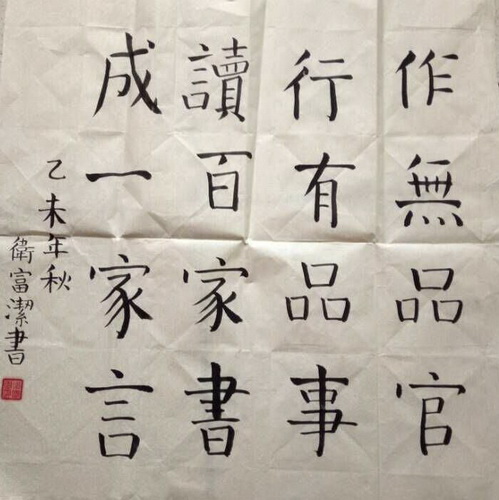 作無品官
行有品事
讀百家書
成一家言
乙未年秋
衛富潔書